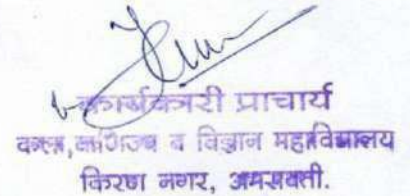 कार्यकारी प्राचार्य
कला, वाणिज्य व विज्ञान महाविद्यालय
किरण नगर, अमरावती.